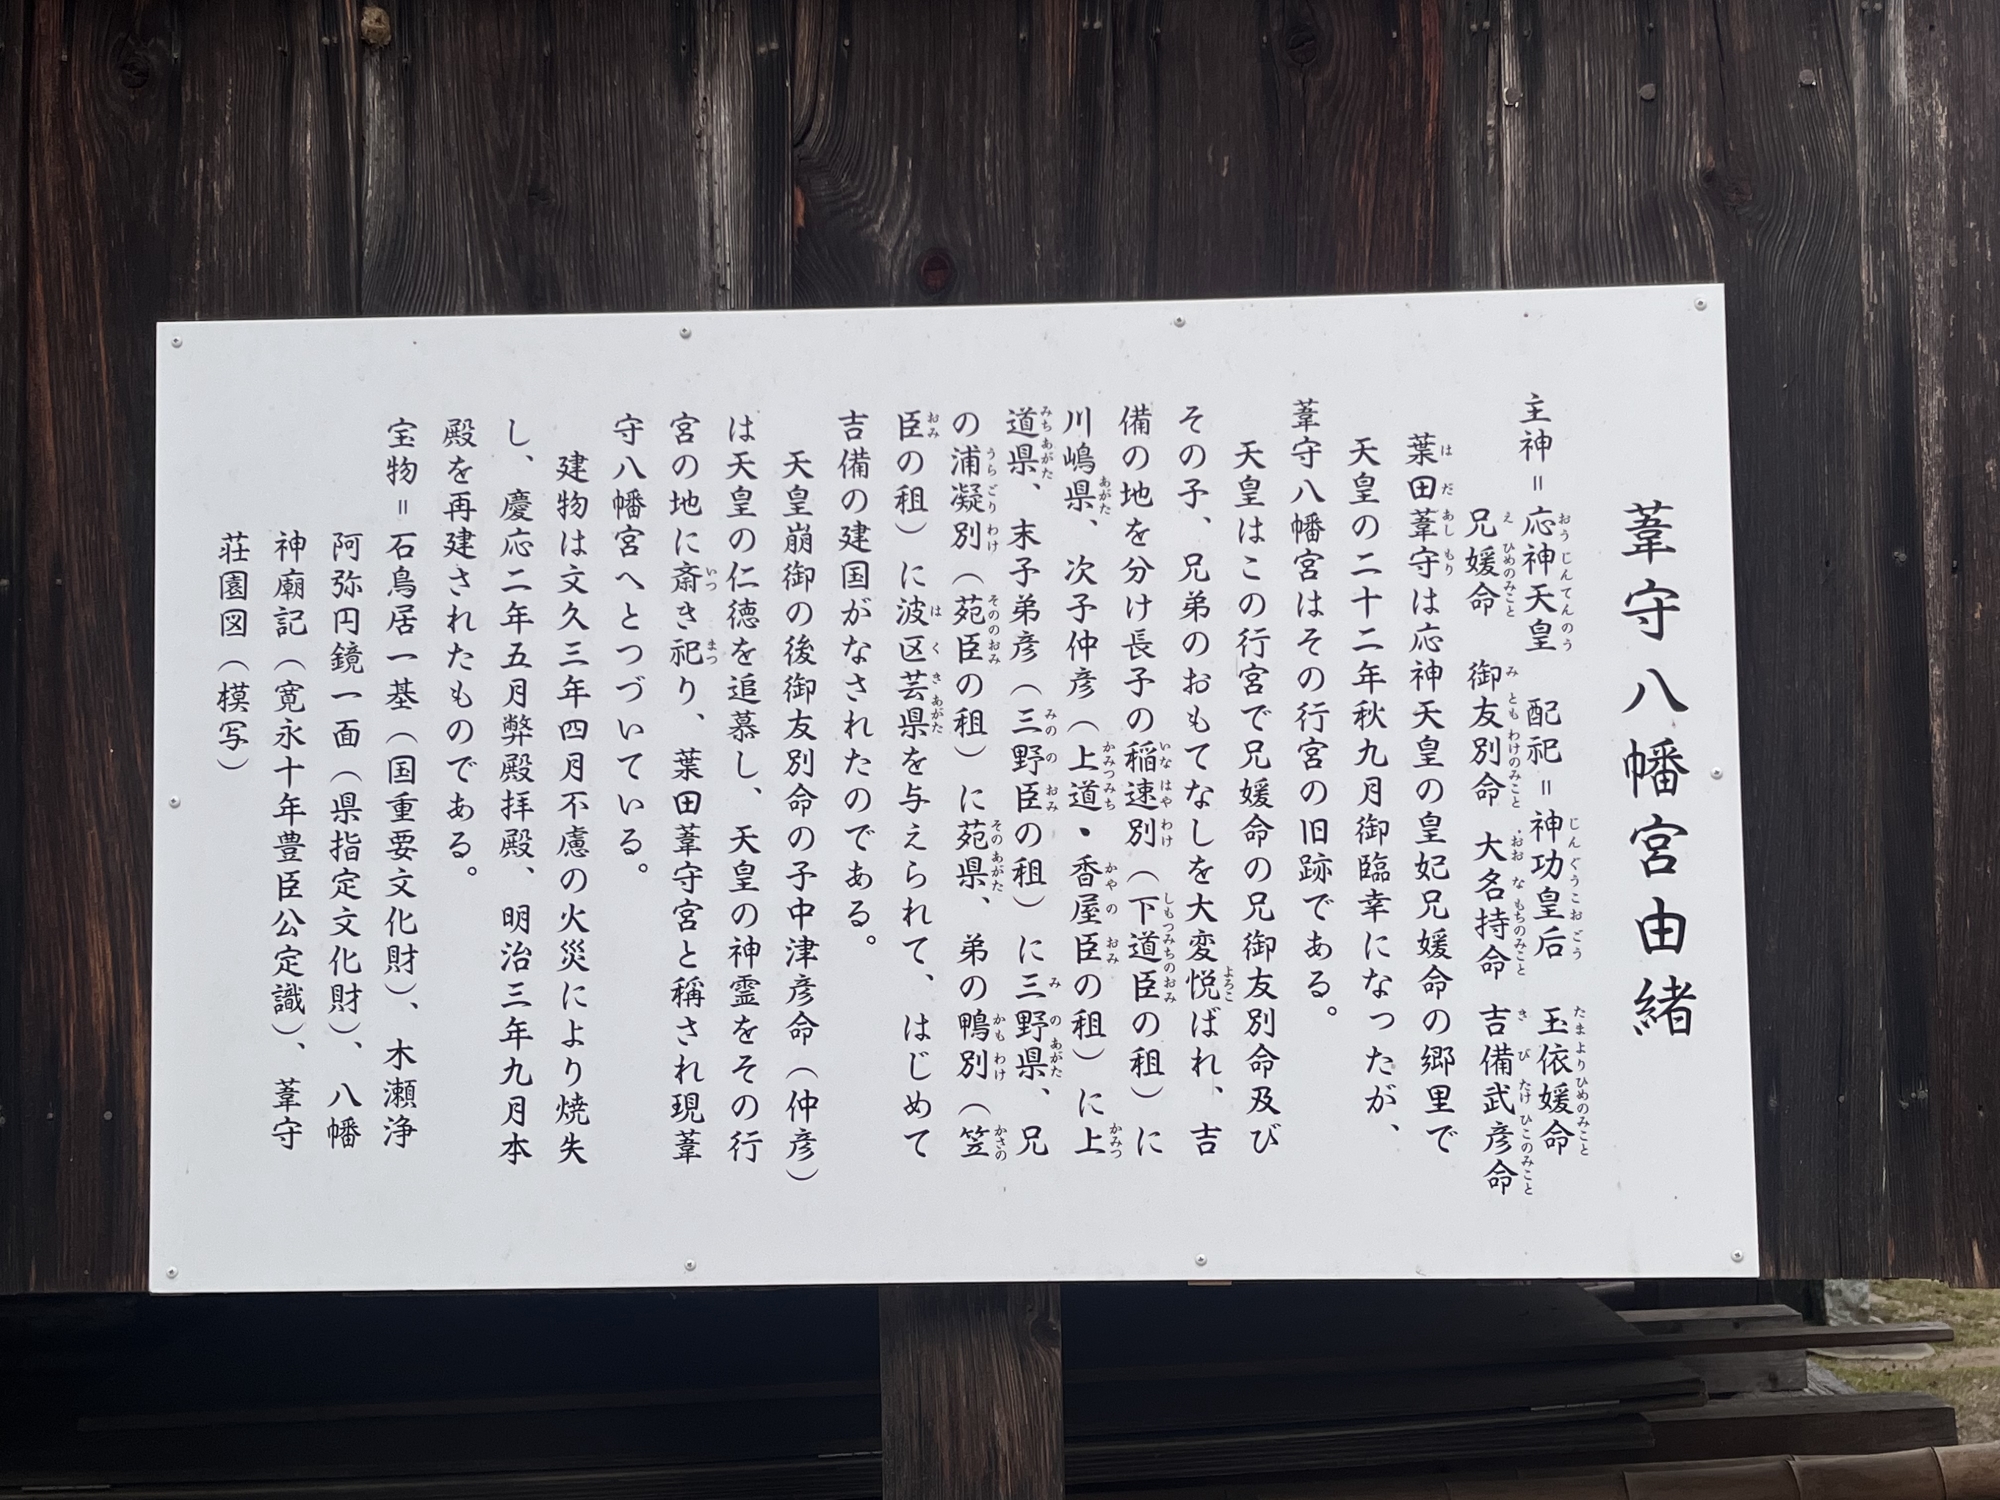 葦守八幡宮由緒
主神＝応神天皇　配祀＝神功皇后　玉依媛命
兄媛命　御友別命　大名持命　吉備武彦命
葉田葦守は応神天皇の皇妃兄媛命の郷里で
天皇の二十二年秋九月御臨幸になったが、
葦守八幡宮はその行宮の旧跡である。
天皇はこの行宮で兄媛命の兄御友別命及び
その子、兄弟のおもてなしを大変悦ばれ、吉
備の地を分け長子の稲速別（下道臣の祖）に
川嶋県、次子仲彦（上道・香屋臣の祖）に上
道県、末子弟彦（三野臣の祖）に三野県、兄
の浦凝別（苑臣の祖）に苑県、弟の鴨別（笠
臣の祖）に波区芸県を与えられて、はじめて
吉備の建国がなされたのである。
天皇崩御の後御友別命の子中津彦命（仲彦）
は天皇の仁徳を追慕し、天皇の神霊をその行
宮の地に斎き祀り、葉田葦守宮と称され現葦
守八幡宮へとつづいている。
建物は文久三年四月不慮の火災により焼失
し、慶応二年五月弊殿拝殿、明治三年九月本
殿を再建されたものである。
宝物＝石鳥居一基（国重要文化財）、木瀬浄
阿弥円鏡一面（県指定文化財）、八幡
神廟記（寛永十年豊臣公定識）、葦守
荘園図（模写）